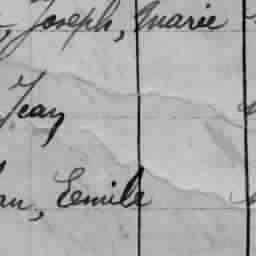 , Joseph, Marie
Jean
an, Emile